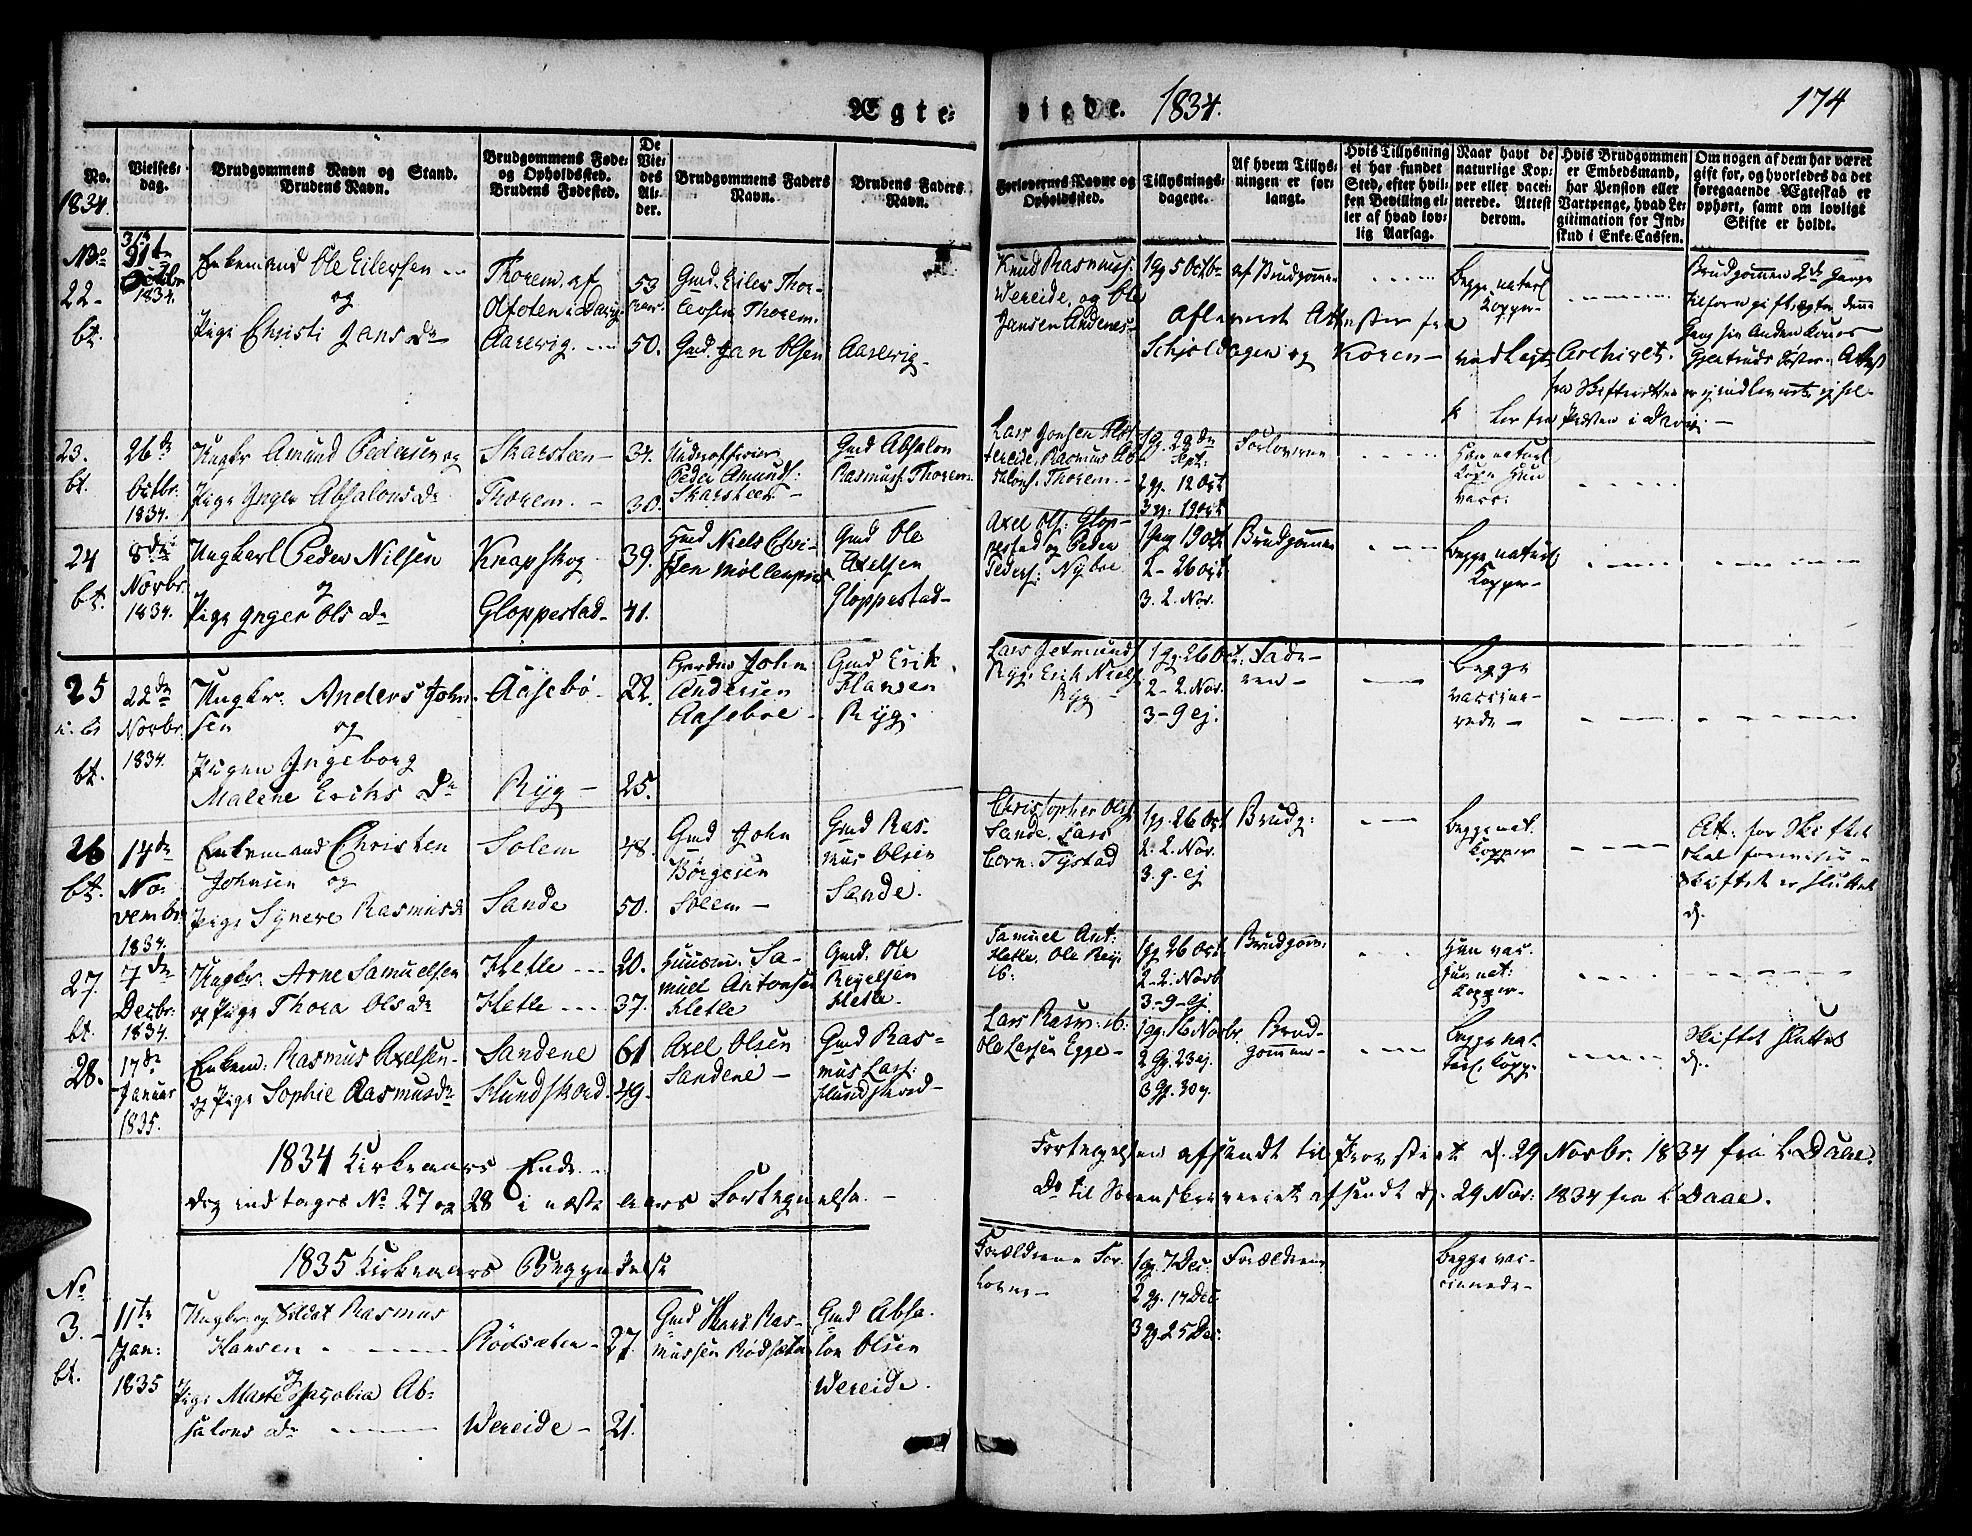 Ægte- viede. 1834. 174
No. 1834
Vielses-dag.
Brudgommens Navn og Stand. Brudens Navn.
Brudgommens Føde- og Opholdssted. Brudens Fødested.
De Vie-des Al-der.
Brudgommens Faders Navn.
Brudens Faders Navn.
Forlovernes Navne og Opholdssted.
Tillysnings-dagene.
Af hvem Tillys-ningen er for-langt.
Hvis Tillysning ei har fundet Sted, efter hvil-ken Bevilling el-ler af hvad lov-lig Aarsag.
Naar havt de naturlige Kop-per eller vacci-nerede. Attest derom.
Hvis Brudgommen er Embedsmand, har Pension eller Vartpenge, hvad Le-gitimation for Ind-skud i Enke-Cassen.
Om nogen af dem har været gift før, og hvorledes da det foregaaende Ægteskab er ophørt, samt om lovligt Skifte er holdt.
No 22- bt.
Octbr 1834.
Enkemand Ole Eilersen
og
Pige Christi Jans Dr
Thorem af
Aarevig
53
50.
Gmd. Eiler Thor-
Thorem.
Gmd. Jan Olsen
Aarevig
Knud Rasmuss:
Vereide, og Ole
Jansen Andenes
1g 5 Octb
af Brudgommen
og Koren
Begge naturl
Kopper
ved Lagt Archivet.
Brudgommen 2de Gange
23. bt.
26de Octbr. 1834.
Ungkr Amund Pedersen og
Pige Inger Absalons Dr
Skarsteen
Thorem.
34.
30.
Underofficier
Peder Amunds:
Skarsteen
Gmd Absalon
Rasmuss. Thorem
Lars Jonsen
Rasmus Ab-
salons. Thorem
1g. 29de Sept:
2 g. 12 Oct
3 g. 19 Oct
Forloverne
Han naturl
Kopp: Hun
vacc:
24 bt.
8de Novbr. 1834.
Ungkarl Peder Nilsen
og
Pige Inger Ols Dr
Knapskog
Gloppestad
39.
41.
Gmd Niels Chri-
Gmd Ole
Axelsen
Gloppestad
Axel Ols: Glop-
pestad og Peder
Peders: Nyböe
1 Gang 19 Oct
2 - 26 Oct
3. 2. Nov.
Brudgommen
Begge naturl
Kopper
25 bt.
22de Novbr. 1834.
Ungkr. Anders John-
sen
og
Pigen Ingeborg
Malene Erichs Dr
Aasebö
Ryg
22.
25.
John
Andersen
Aaseböe
Gmd Erik
Hansen
Ryg.
Lars Getmunds
Ryg. Erik Niels
Ryg
1 g. 26 Oct:
2 - 2. Nov.
3 - 9 ej.
Fade-
ren
Begge
vaccine-
rede
26 bt.
14de No-vembr 1834.
Enkemand Christen
Johnsen og
Pige Syneve Rasmusd
Solem
Sande
48.
50.
Gmd John
Börgesen
Solem
Gmd Ras-
mus Olsen
Sande.
Christopher Ols
Sande. Lars
Corn: Tystad
1g. 26 Oct
2. 2. Nov.
3. 9. ej
Brudg:
Begge nat.
Kopper
Att. for Skiftet
skal
Skiftet er sluttet
27. bt.
7de Decbr: 1834.
Ungkr. Arne Samuelsen
og Pige Thora Ols Dr
Hetle
Hetle
20.
37.
Huusm. Sa-
muel Antonsen
Hetle
Gmd. Ole
Hetle.
Samuel Ant:
Hetle. Ole
ib:
1g. 26 Oct
2 - 2. Novb
3 - 9 - ej
Brudgom:
Hun vac.
nat:
Kopper
28.
17de Januar 1835.
Enkem: Rasmus Axelsen
og Pige Sophie Rasmusdr
Sandene
Hundskord
61
49.
Axel Olsen
Sandene
Gmd Ras-
mus Lars:
Hundskord
Lars Rasm: ib:
Ole Larsen Egge
1g. 16 Novbr.
2 g. 23 ej.
3 g. 30 ej.
Brud-
gommen
Begge nat
turl. Kopp.
Skiftet sluttet
1834 Kirkeaars Ende
dog indtages No 27 og 28 i næste aars Fortegnelse.
Fortegnelsen afsendt til Provstiet d. 29 Novbr. 1834 fra L. Daae.
Do til Sorenskriveriet afsendt d. 29 Nov: 1834 fra L Daae.
1835 Kirkeaars Begyndelse
No 3. bt.
11te Jan: 1835
Ungkr. og Soldat Rasmus
Hansen
og
Pige Marte Jacobia Ab-
salons Dr
Rödsæten
Wereide
27.
21.
Gmd Hans Ras-
mussen Rödsæten
Gmd Absa-
lon Olsen
Wereide.
Forældrene For-
lovere
1g. 7 Dec:
2 g. 17 Dec
3 g. 25 Dec:
Forældrene
Begge vac-
cinerede